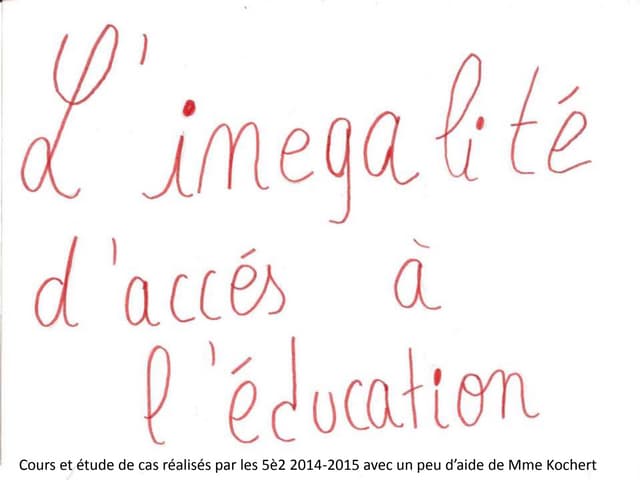 L'inegalité
d'accés à
l'éducation
Cours et étude de cas réalisés par les 5è2 2014-2015 avec un peu d’aide de Mme Kochert